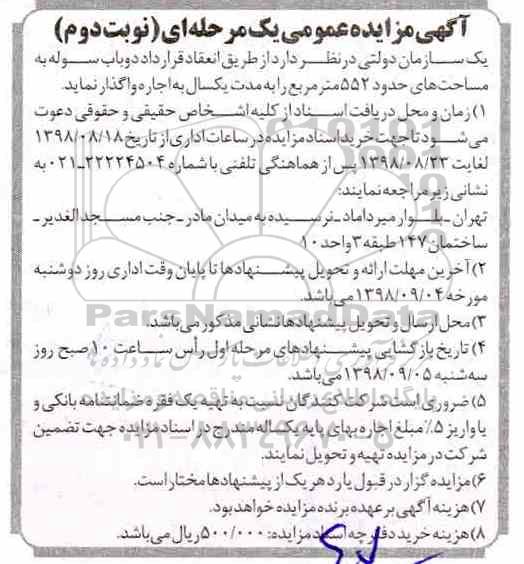 آگهی مزایده عمومی یک مرحله‌ای (نوبت دوم)
یک سازمان دولتی در نظر دارد از طریق انعقاد قرارداد دو باب سوله به
مساحت‌های حدود ۵۵۲ متر مربع را به مدت یکسال به اجاره واگذار نماید.
۱) زمان و محل دریافت اسناد از کلیه اشخاص حقیقی و حقوقی دعوت
می‌شود تا جهت خرید اسناد مزایده در ساعات اداری از تاریخ ۱۳۹۸/۰۸/۱۸
لغایت ۱۳۹۸/۰۸/۲۳ پس از هماهنگی تلفنی با شماره ۲۲۲۲۴۵۰۴-۰۲۱ به
نشانی زیر مراجعه نمایند:
تهران - بلوار میرداماد - نرسیده به میدان مادر - جنب مسجد الغدیر -
ساختمان ۱۴۷ طبقه ۳ واحد ۱۰
۲) آخرین مهلت ارائه و تحویل پیشنهادها تا پایان وقت اداری روز دوشنبه
مورخه ۱۳۹۸/۰۹/۰۴ می‌باشد.
۳) محل ارسال و تحویل پیشنهادها نشانی مذکور می‌باشد.
۴) تاریخ بازگشایی پیشنهادهای مرحله اول رأس ساعت ۱۰ صبح روز
سه‌شنبه ۱۳۹۸/۰۹/۰۵ می‌باشد.
۵) ضروری است شرکت‌کنندگان نسبت به تهیه یک فقره ضمانتنامه بانکی و
یا واریز ۵٪ مبلغ اجاره بهای پایه یکساله مندرج در اسناد مزایده جهت تضمین
شرکت در مزایده تهیه و تحویل نمایند.
۶) مزایده گزار در قبول یا رد هر یک از پیشنهادها مختار است.
۷) هزینه آگهی بر عهده برنده مزایده خواهد بود.
۸) هزینه خرید دفترچه اسناد مزایده: ۵۰۰/۰۰۰ ریال می‌باشد.
ParsNamadData
۰۲۱-۸۸۳۴۹۶۷۰-۵